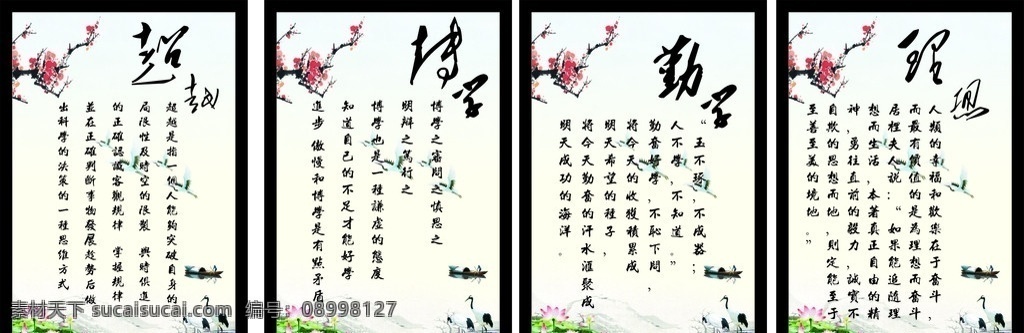 超越
超越是指一個人能夠突破自身的
局限性及時空的限製 與時俱進
的正確認識客觀規律 掌握規律
並在正確判斷事物發展趨勢后做
出科學的决策的一種思维方式
博学
博學之審問之慎思之
明辯之篤行之
博學也是一種謙虛的態度
知道自己的不足才能好學
進步 傲慢和博學是有點矛盾
勤学
“玉不琢，不成器；
人不學，不知道。”
勤奮好學，不恥下問，
明天希望的種子
將今天的收獲積累成
將今天勤奮的汗水滙聚成
明天成功的海洋.
理想
人類的幸福和歡樂在于奮斗，
而最有價值的是為理想而奮斗
居裡夫人說：“如果能追随理
想而生活，本著真正自由的精
神，勇往直前的毅力，誠實不
自欺的思想而地，則定能至于
至善至美的境地。”
素材天下 sucaisucai.com 编号：08998127